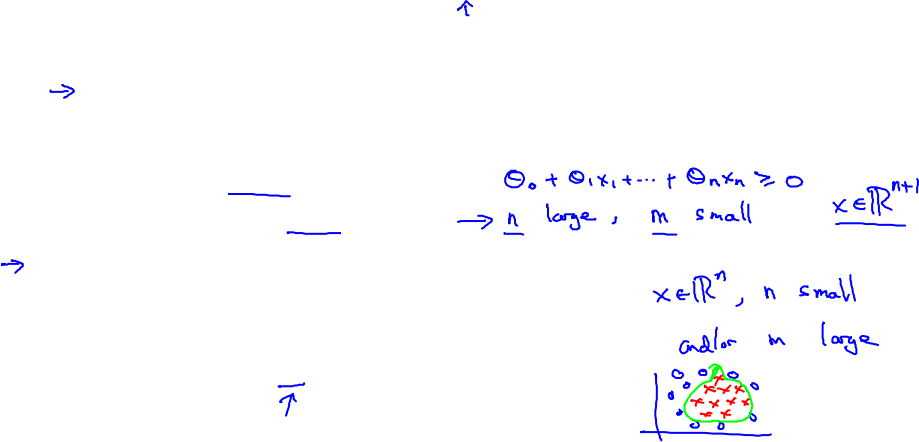 θ₀ + θ₁x₁ + ⋯ + θₙxₙ ≥ 0
→ n large, m small x ∈ ℝⁿ⁺¹
x ∈ ℝⁿ, n small
and/or m large